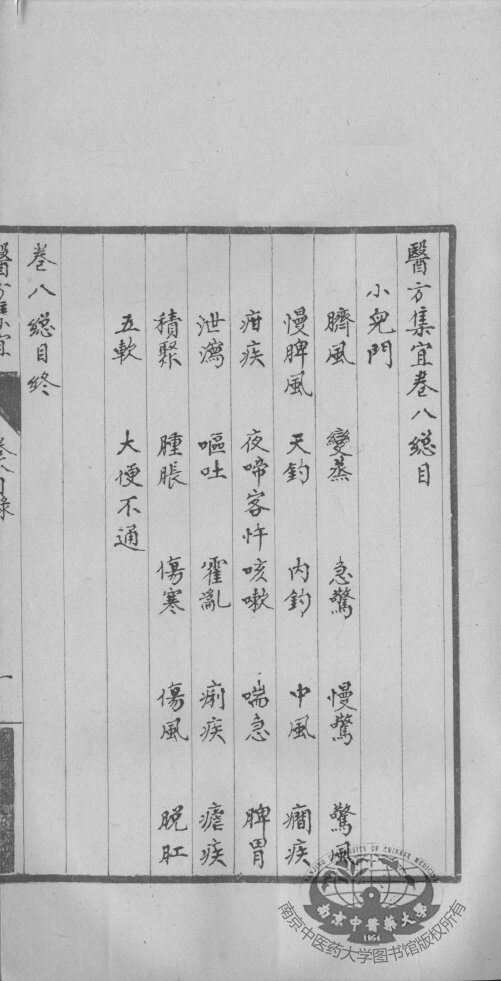 醫方集宜卷八總目
小兒門
臍風 變蒸 急驚 慢驚 驚風
慢脾風 天釣 內釣 中風 癇疾
疳疾 夜啼客忤 咳嗽 喘急 脾胃
泄瀉 嘔吐 霍亂 痢疾 瘧疾
積聚 腫脹 傷寒 傷風 脫肛
五軟 大便不通
卷八總目終
醫方集宜
卷八目錄
一
南京中醫藥大學
1954
南京中医药大学图书馆版权所有